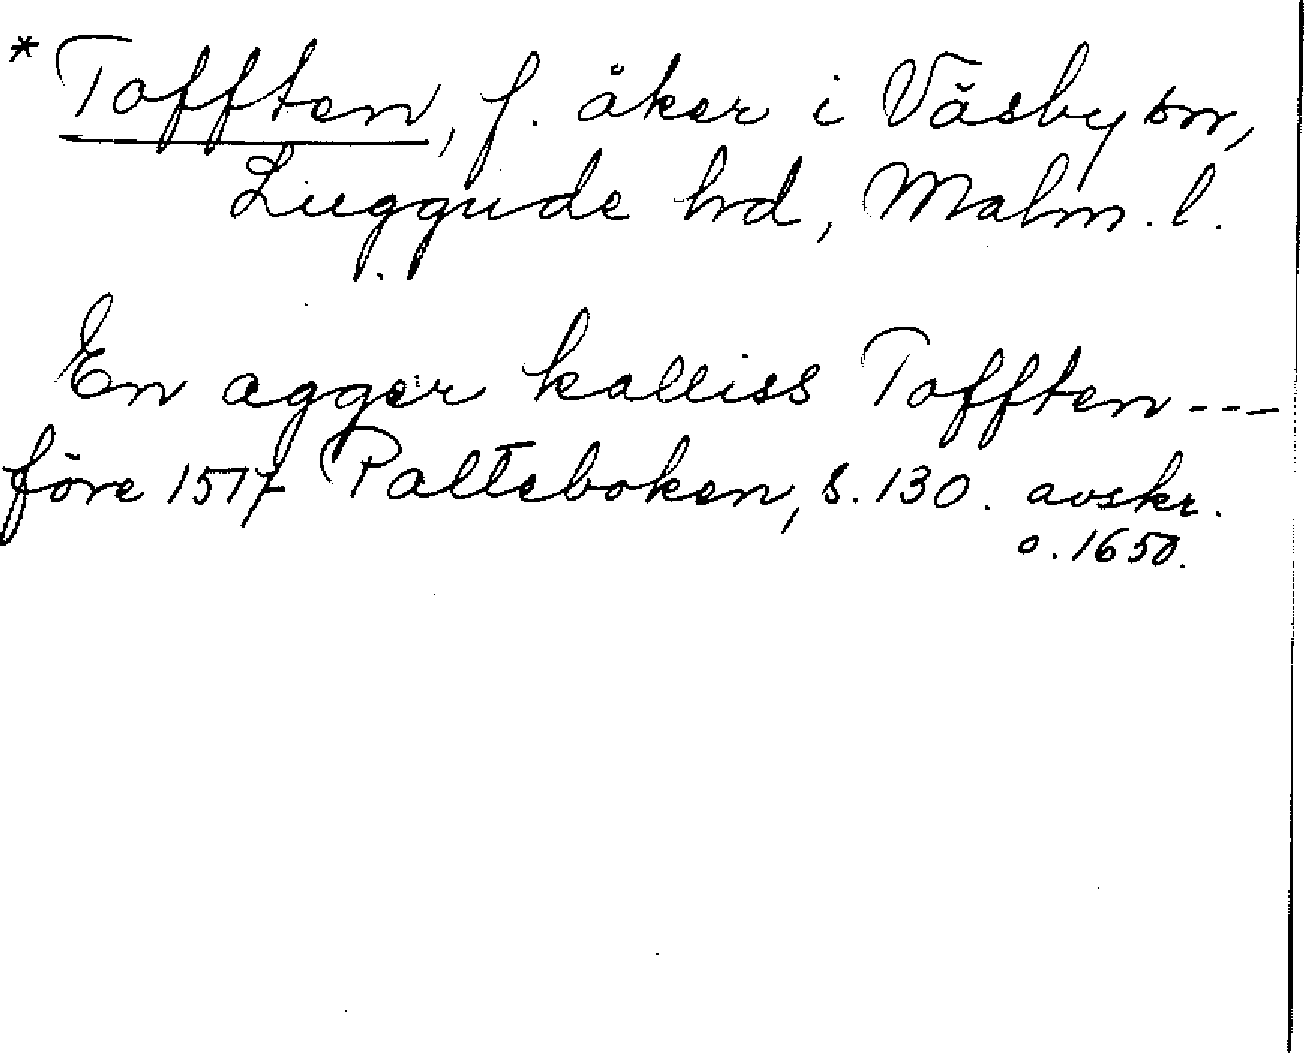 * Tofften, f. åker i Väsby sn,
Luggude hd, Malm. l.
En agger kalliss Tofften ---
före 1517 Palteboken, s. 130. avskr.
o. 1650.